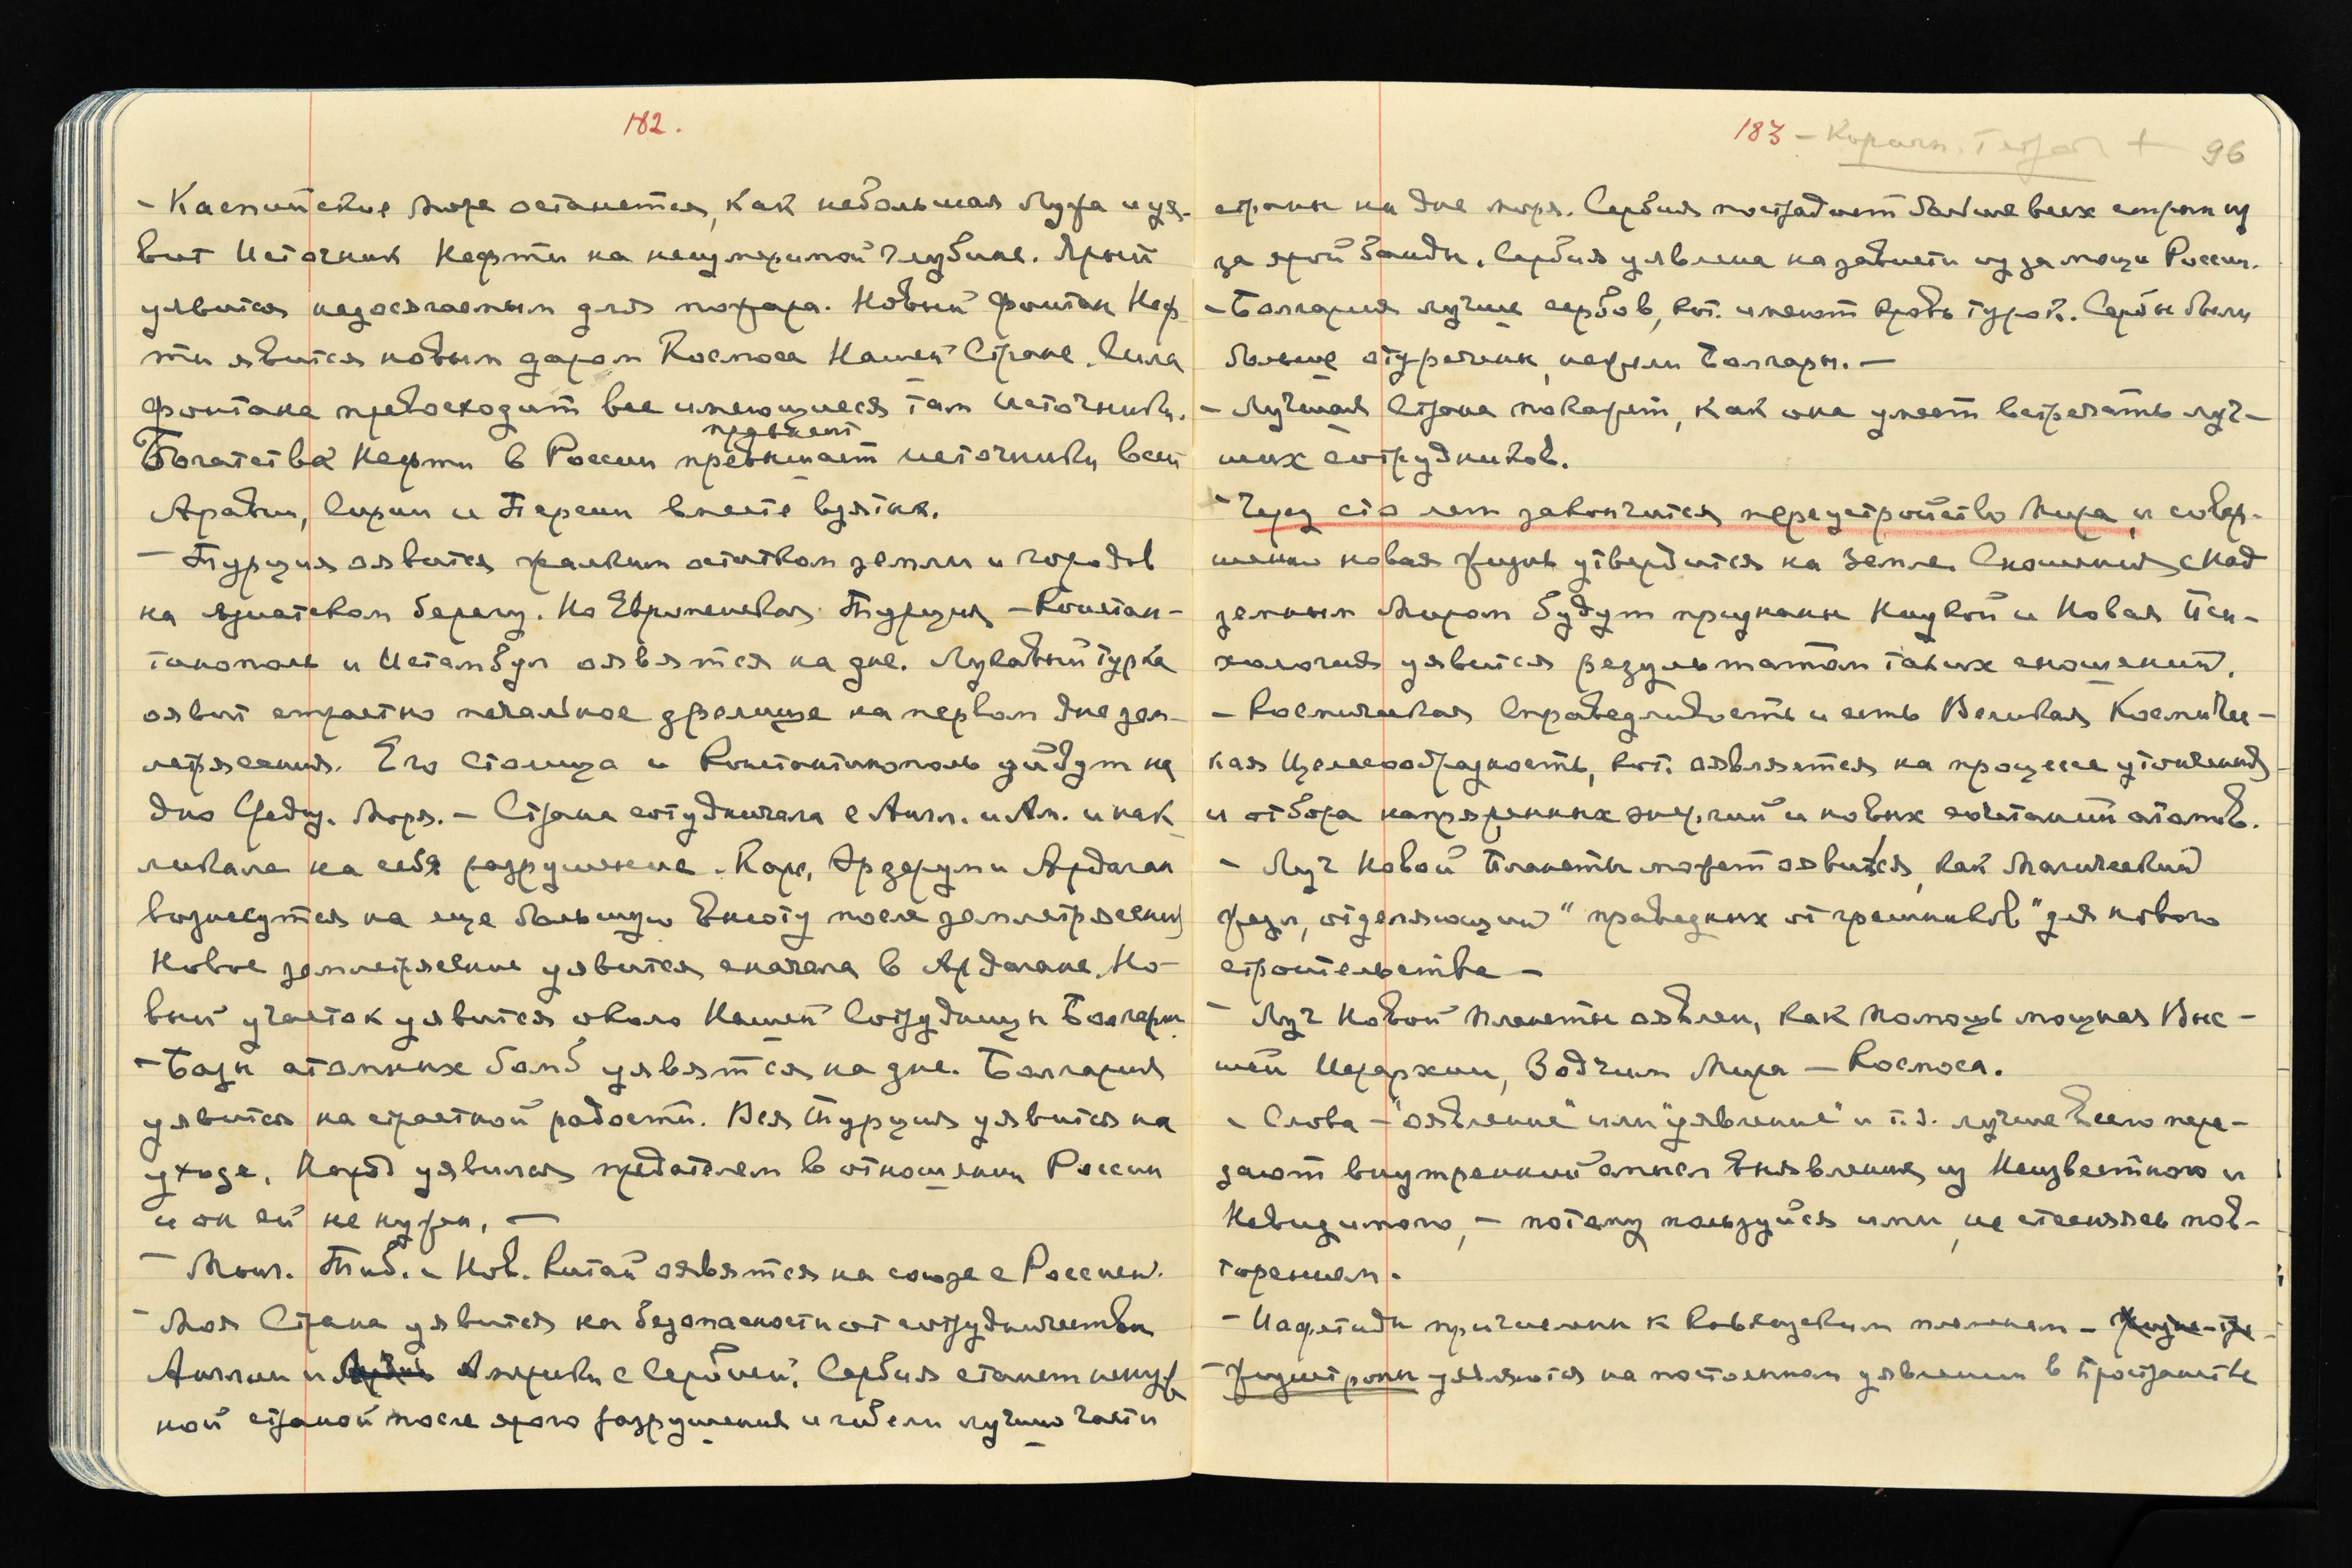 182.
- Каспийское Море останется, как небольшая Лужа и уя-
вит Источник Нефти на неизмеримой глубине. Ярый
уявится недосягаемым для пожара. Новый фонтан Неф-
ти явится новым даром Космоса Нашей Стране. Сила
фонтана превосходит все имеющиеся там Источники.
Богатства Нефти в России превышает источники всей
Аравии, Сирии и Персии вместе взятых.
- Турция оявится жалким остатком земли и городов
на азиатском берегу. Но Европейская Турция - Констан-
тинополь и Истамбул оявятся на дне. Лукавый турка
оявит страстно печальное зрелище на первом дне зем-
летрясения. Его Столица и Константинополь уйдут на
дно Средиз. Моря. - Страна сотрудничала с Англ. и Ам. и нак-
ликала на себя разрушение. Карс, Эрзерум и Ардаган
вознесутся на еще большую высоту после землетрясения
Новое землетрясение уявится сначала в Ардагане. Но-
вый участок уявится около Нашей Сотрудницы Болгарии.
- Базы атомных бомб уявятся на дне. Болгария
уявится на страстной радости. Вся Турция уявится на
уходе. Народ уявился предателем в отношении России
и он ей не нужен. -
- Монг. Тиб. и Нов. Китай оявятся на союзе с Россией.
- Моя Страна уявится на безопасности от сотрудничества
Англии и Америки с Сербией. Сербия станет ненуж-
ной страной после ярого разрушения и гибели лучшей части
183 - 96
страны на дне моря. Сербия пострадает больше всех стран из
за ярой банды. Сербия уявлена на зависти из за мощи России.
- Болгария лучше сербов, кот. имеют кровь турок. Сербы были
больше отуречены, нежели Болгары. -
- Лучшая Страна покажет, как она умеет встречать луч-
ших сотрудников.
- Через сто лет закончится переустройство Мира, и совер-
шенно новая жизнь утвердится на Земле. Сношения с Над
земным Миром будут признаны Наукой и Новая Пси-
хология уявится результатом таких сношений.
- Космическая Справедливость и есть Великая Космичес-
кая Целесообразность, кот. оявляется на процессе утончения
и отбора напряженных энергий и новых сочетаний атомов.
- Луч Новой Планеты может оявиться, как Магический
жезл, отделяющий "праведных от грешников" для нового
строительства -
- Луч Новой Планеты оявлен, как помощь мощная Выс-
шей Иерархии, Зодчим Мира - Космоса.
- Слова - "оявление" или "уявление" и т.д. лучше всего пере-
дают внутренний смысл выявления из Неизвестного и
Невидимого, - потому пользуйся ими, не стесняясь пов-
торением.
- Иафетиды причислены к кавказским племенам -
- Жизнетроны уявляются на постоянном уявлении в Пространстве